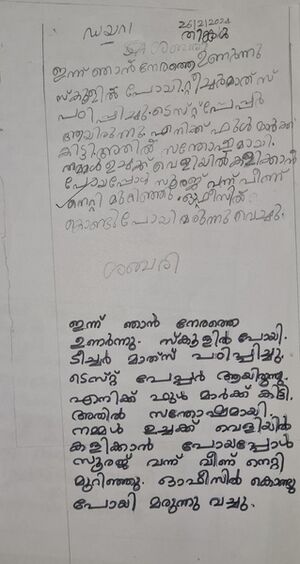 ഡയറി
26/2/2024
തിങ്കൾ
ശബരി
ഇന്ന് ഞാൻ നേരത്തെ ഉണർന്നു
സ്കൂളിൽ പോയി. ടീച്ചർ മാത്സ്
പഠിപ്പിച്ചു. ടെസ്റ്റ് പേപ്പർ
ആയിരുന്നു എനിക്ക് ഫുൾ മാർക്ക്
കിട്ടി. അതിൽ സന്തോഷമായി.
നമ്മൾ ഉച്ചക്ക് വെളിയിൽ കളിക്കാൻ
പോയപ്പോൾ സൂരജ് വന്ന് വീണ്
നെറ്റി മുറിഞ്ഞു. ഓഫീസിൽ
കൊണ്ടുപോയി മരുന്നു വെച്ചു.
ശബരി
ഇന്ന് ഞാൻ നേരത്തെ
ഉണർന്നു. സ്കൂളിൽ പോയി.
ടീച്ചർ മാത്സ് പഠിപ്പിച്ചു.
ടെസ്റ്റ് പേപ്പർ ആയിരുന്നു.
എനിക്ക് ഫുൾ മാർക്ക് കിട്ടി.
അതിൽ സന്തോഷമായി.
നമ്മൾ ഉച്ചക്ക് വെളിയിൽ
കളിക്കാൻ പോയപ്പോൾ
സൂരജ് വന്ന് വീണ് നെറ്റി
മുറിഞ്ഞു. ഓഫീസിൽ കൊണ്ടു
പോയി മരുന്നു വച്ചു.